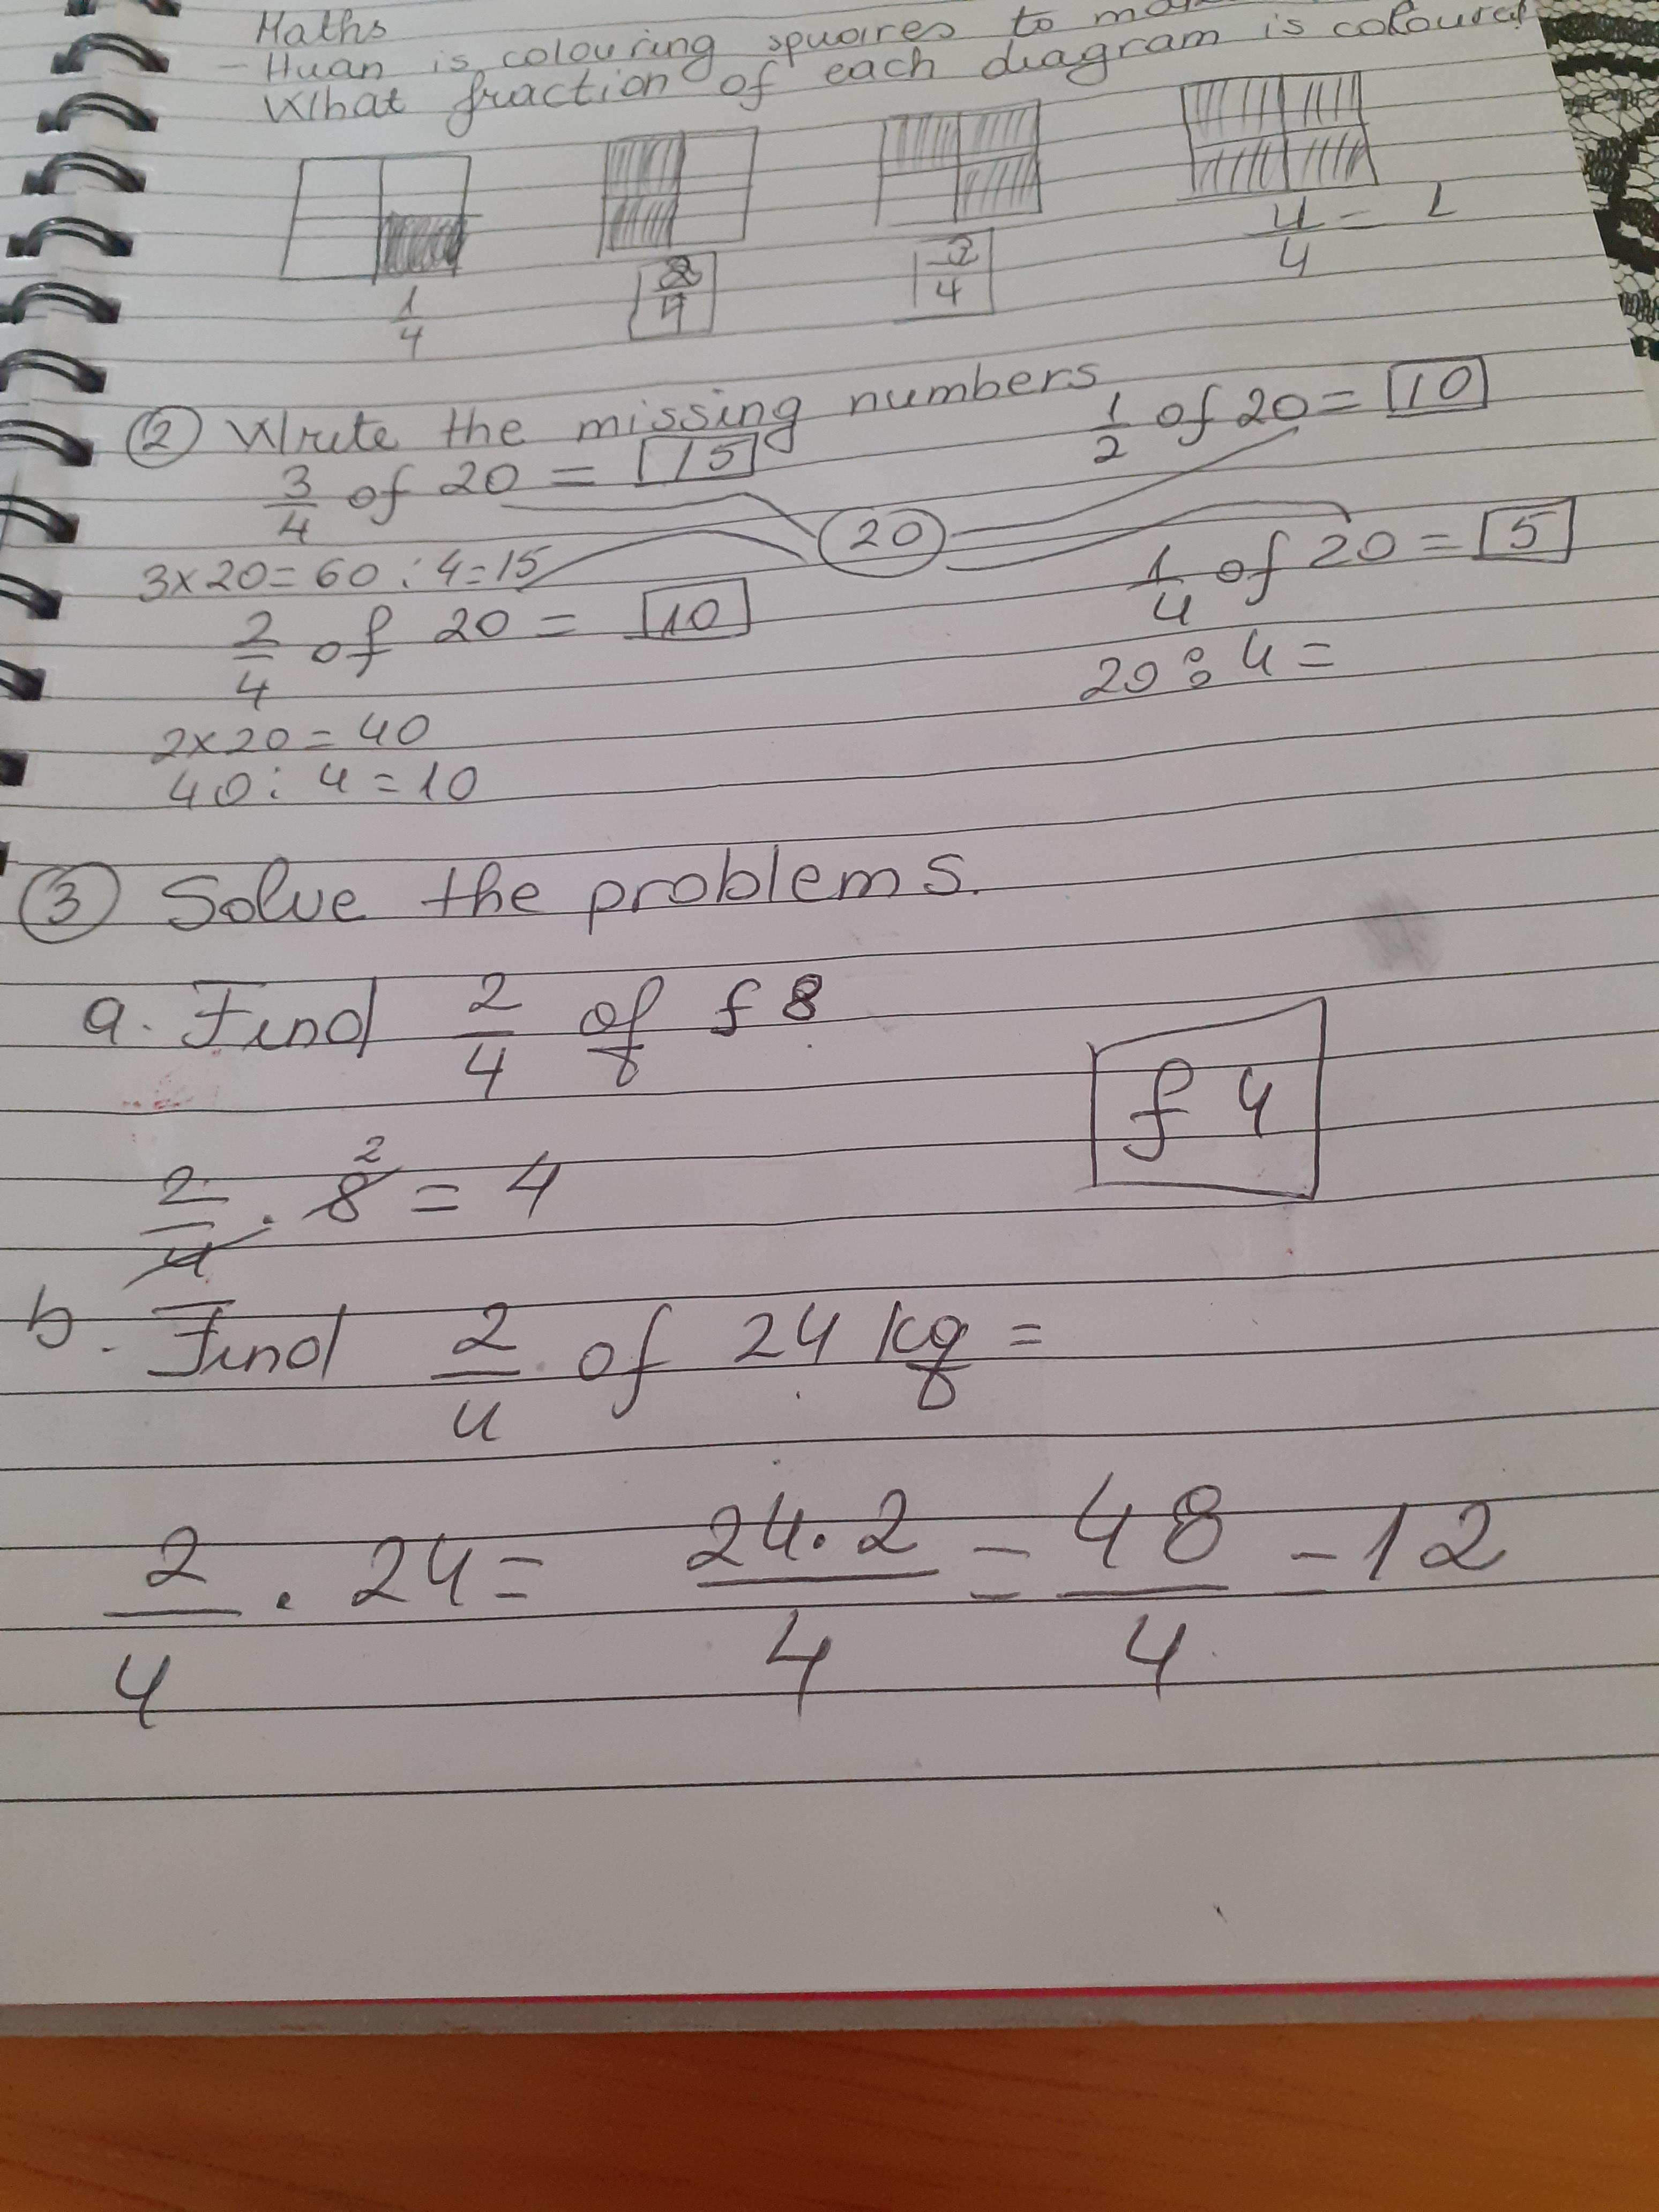 Maths
- Huan is colouring squares to
What fraction of each diagram is coloured
1/4 2/4 3/4 4/4 = 1
② Write the missing numbers
3/4 of 20 = 15 1/2 of 20 = 10
20
3x20=60:4=15 1/4 of 20 = 5
2/4 of 20 = 10
20:4=
2x20=40
40:4=10
③ Solve the problems.
a. Find 2/4 of £8
£4
2/4 . 8 2 = 4
b. Find 2/4 of 24 kg =
2/4 . 24 = 24.2/4 = 48/4 = 12